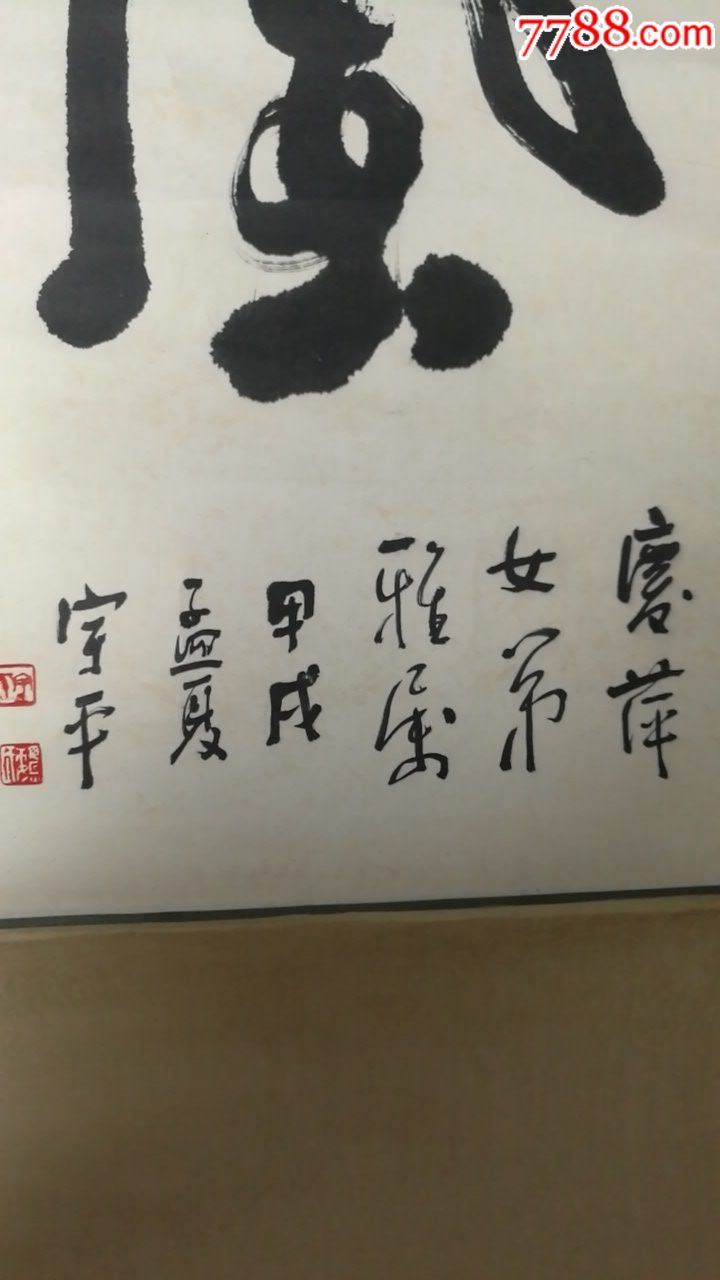 7788.com
風
慶萍
女弟
雅属
甲戌
孟夏
宇平